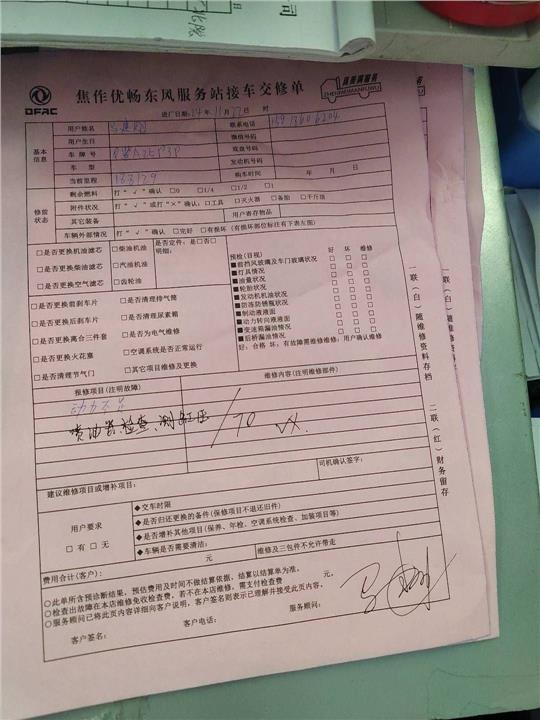 司
DFAC
焦作优畅东风服务站接车交修单
真爱满服务
ZHENAIMANFUWU
进厂日期:24年11月27日 时
基本信息
用户姓名
联系电话
用户生日
微信号码
车牌号
底盘号码
车型
发动机号
当前里程 163179
购车时间 年 月 日
修前状态
剩余燃料 打“√”确认 □0 □1/4 □1/2 □1
附件状况 打“√”或打“×”确认:□工具 □灭火器 □备胎 □千斤顶
其它装备
用户寄存物品
车辆外部情况 打“√”确认 □完好 □有损坏(有损坏部位标注有下表左图)
□是否更换机油滤芯 □柴油机油 是否定件:是□否□
□是否更换柴油滤芯 □汽油机油 明细:
□是否更换空气滤芯 □齿轮油
□是否更换前刹车片 □是否清理排气筒
□是否更换后刹车片 □是否清理尿素箱
□是否更换离合三件套 □是否为电气维修
□是否更换火花塞 □空调系统是否正常运行
□是否清理节气门 □其它项目维修及更换
预检(目视) 好 坏 维修
■前挡风玻璃及车门玻璃状况 □ □ □
■灯具情况 □ □ □
■油量状况 □ □ □
■轮胎状况 □ □ □
■发动机机油状况 □ □ □
■防冻防锈瓶状况 □ □ □
■制动液液面 □ □ □
■动力转向液液面 □ □ □
■变速箱漏油情况 □ □ □
■后桥漏油情况 □ □ □
好:合格 坏:有故障需维修:用户确认维修
报修项目(注明故障)
维修内容(注明维修部件)
动力不足
喷油器检查、测缸压 / 70
司机确认签字:
建议维修项目或增补项目:
用户要求
□有 □无
◆交车时限
◆是否归还更换的备件(保修项目不退还旧件)
◆是否增补其他项目(保养、年检、空调系统检查、加装项目等)
◆车辆是否需要清洁:
费用合计(客户): 元
维修及三包件不允许带走
○此单所含预诊断结果,预估费用及时间不做结算依据,结算以结算单为准,
○检查出故障在本店维修免收检查费,若不在本店维修,需支付检查费 元,
○服务顾问已将此页内容详细向客户说明,客户签名则表示已理解并接受此页内容,
客户签名: 客户电话: 服务顾问:
一联(白)随维修资料存档
二联(红)财务留存
一联(白)随维修资料存档
二联(红)财务留存